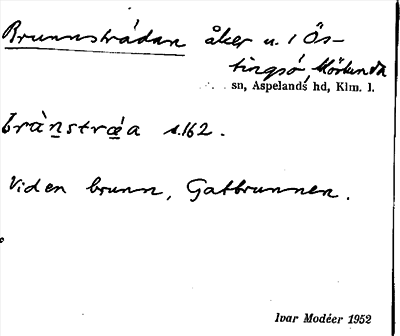 Brunnsträdan åker u. 1 Ös-
tingsö, Mörlunda
sn, Aspelands hd, Klm. l.
brànstráa s.162.
Vid en brunn, Gatbrunnen.
Ivar Modéer 1952